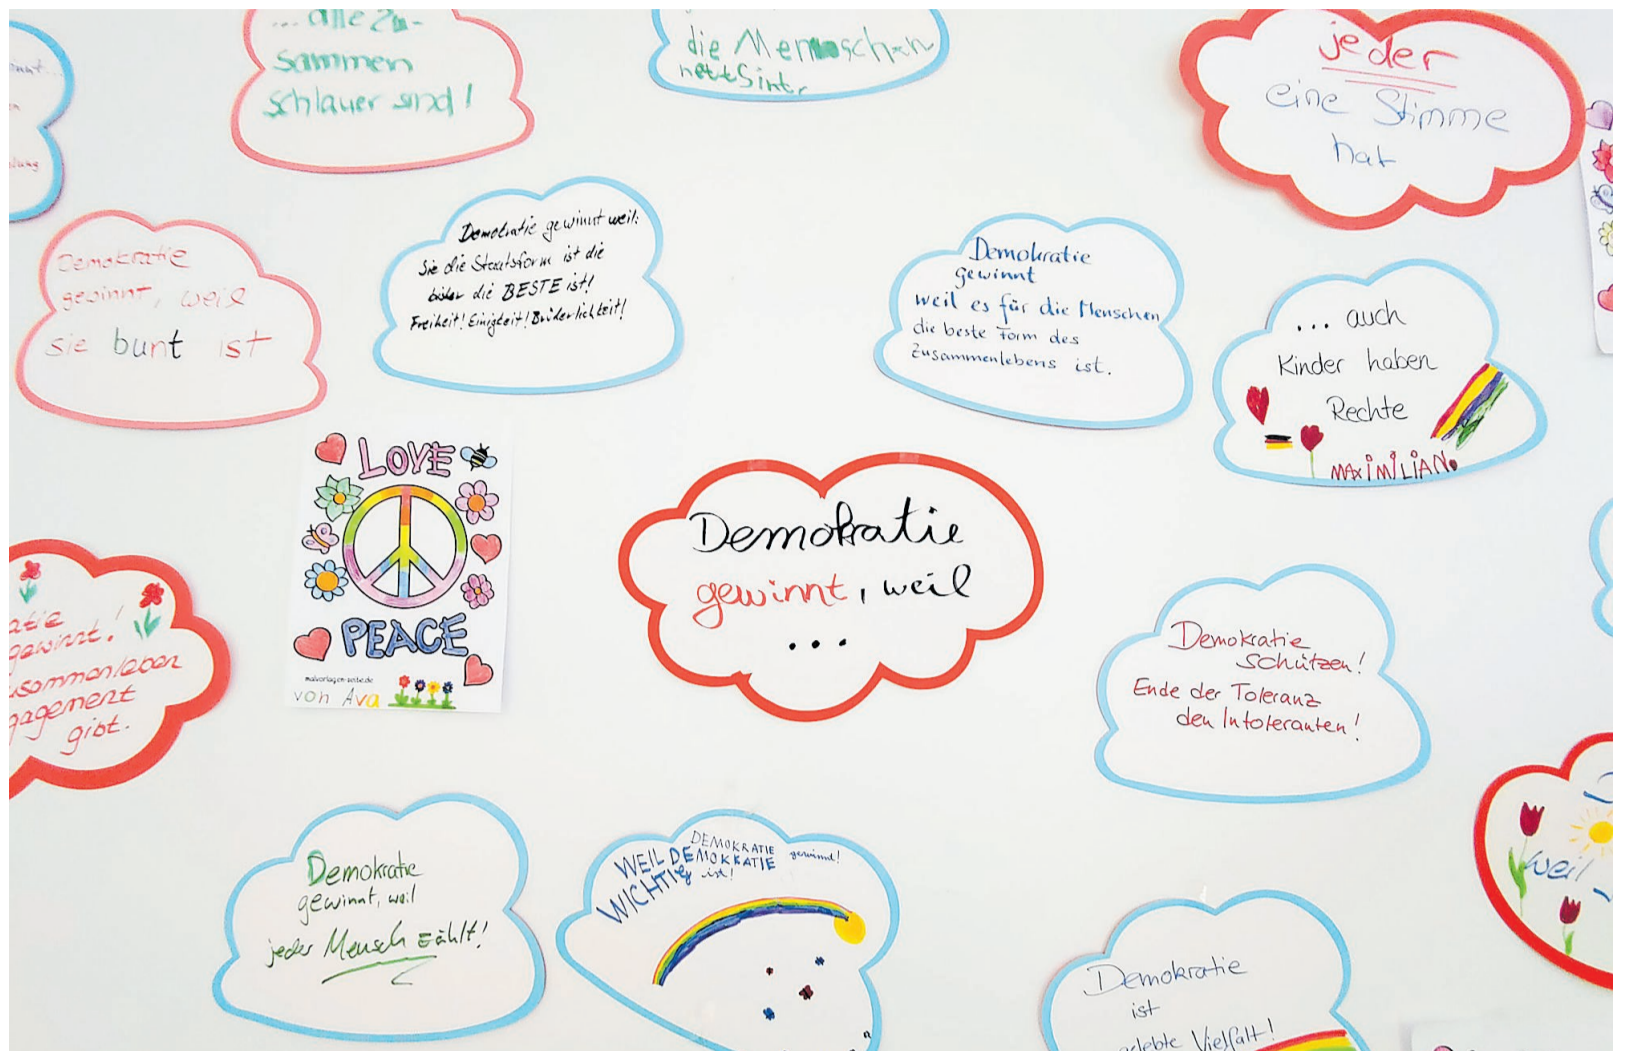 ... alle zu-
sammen
schlauer sind!
die Menschen
nett Sint.
jeder
eine Stimme
hat
Demokratie
gewinnt, weil
sie bunt ist
Demokratie gewinnt weil:
Sie die Staatsform ist die
bisher die BESTE ist!
Freiheit! Einigkeit! Brüderlichkeit!
Demokratie
gewinnt
weil es für die Menschen
die beste Form des
Zusammenlebens ist.
... auch
Kinder haben
Rechte
MAXIMILIAN
LOVE
PEACE
malvorlagen-seite.de
von Ava
Demokratie
gewinnt, weil
...
atie
gewinnt!
usammenleben
gagement
gibt.
Demokratie
schützen!
Ende der Toleranz
den Intoleranten!
Demokratie
gewinnt, weil
jeder Mensch zählt!
DEMOKRATIE gewinnt!
WEIL DEMOKRATIE
WICHTIG ist!
weil
Demokratie
ist
gelebte Vielfalt!